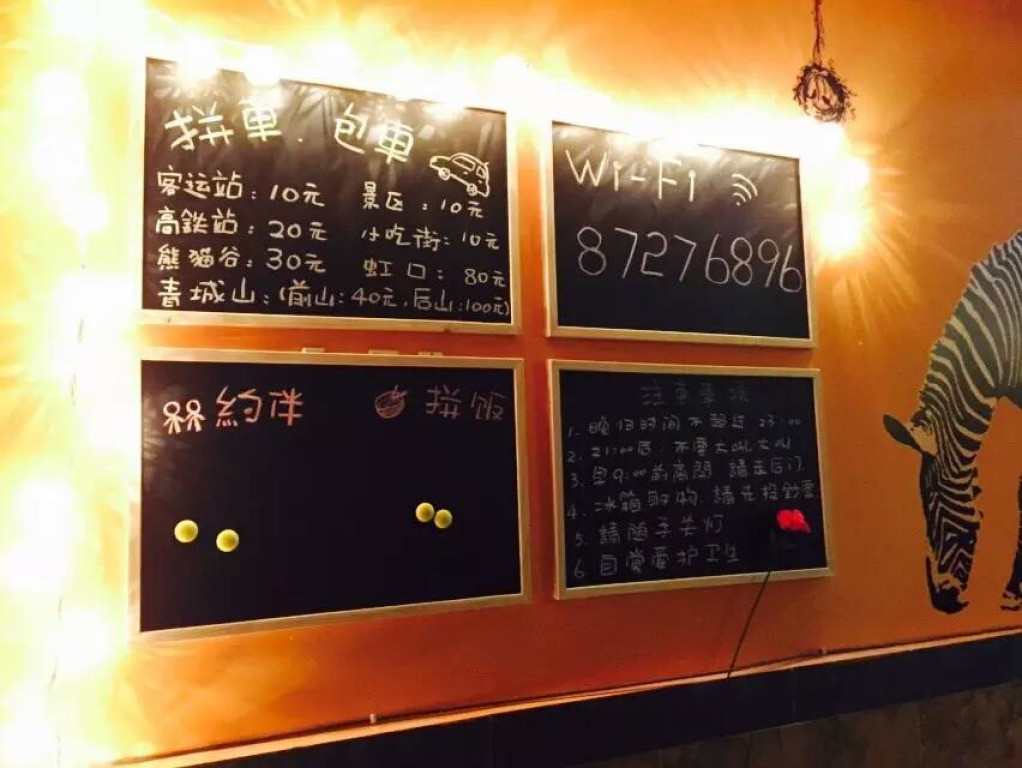 拼車.包車
客运站:10元 景区:10元
高鉄站:20元 小吃街:10元
熊猫谷:30元 虹口:80元
青城山:(前山:40元,后山:100元)
Wi-Fi
87276896
約伴 拼饭
注意事项
1. 晚归时间不超过23:00
2. 21:00后,不要大吼大叫
3. 早9:00前离開,請走后门
4. 冰箱取物,請先投鈔票
5. 請随手关灯
6. 自觉爱护卫生